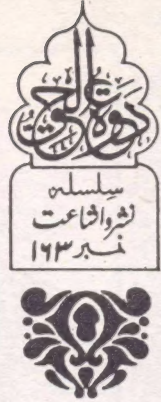 له دعوة الحق
سلسلہ
نشر و اشاعت
نمبر ۱۶۳